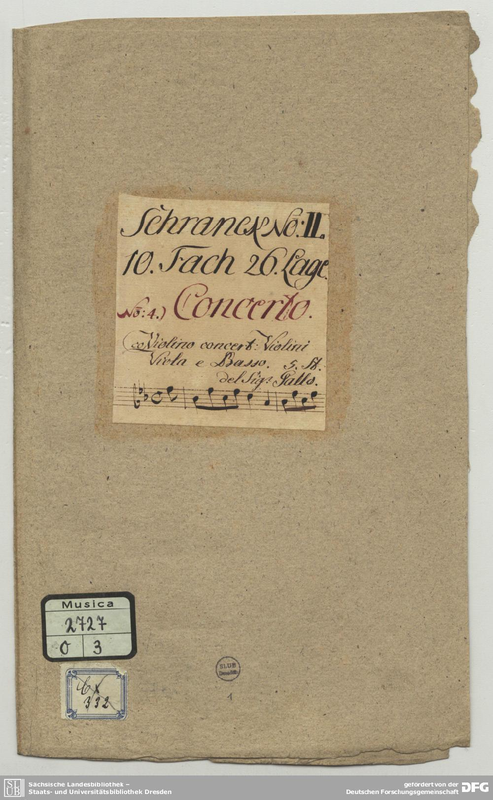 Schranck No: II.
10. Fach 26. Lage.
No: 4.) Concerto.
co Violino concert: Violini
Viola e Basso. 5. St.
del Sigr
Musica
2727
O 3
Cx
332
SLUB
Dresden
1
SLUB
Sächsische Landesbibliothek –
Staats- und Universitätsbibliothek Dresden
gefördert von der
Deutschen Forschungsgemeinschaft DFG